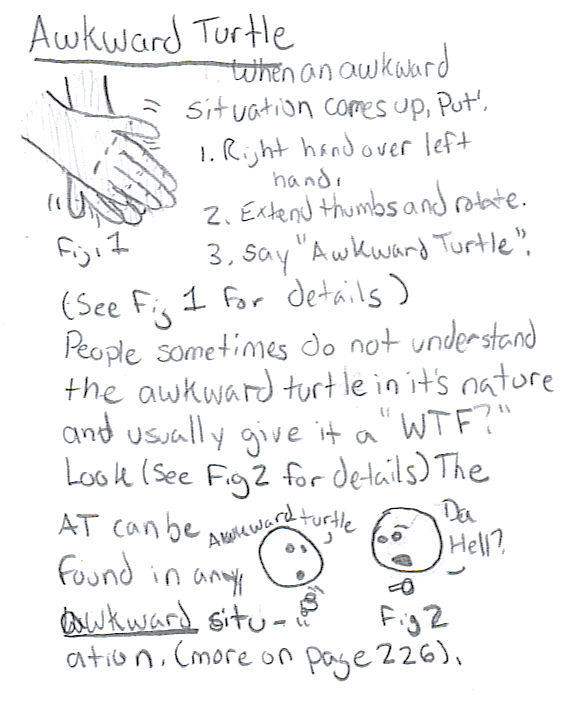 Awkward Turtle
When an awkward
situation comes up, Put:
1. Right hand over left
hand,
2. Extend thumbs and rotate.
3. Say "Awkward Turtle".
Fig. 1
(See Fig 1 for details)
People sometimes do not understand
the awkward turtle in it's nature
and usually give it a "WTF?"
Look (See Fig 2 for details) The
AT can be
found in any
awkward situ-
ation. (more on page 226).
Awkward turtle
Da
Hell?
Fig 2